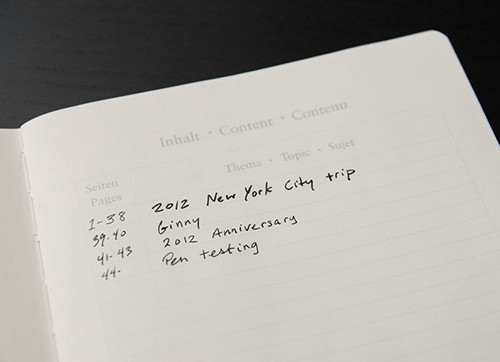 Inhalt · Content · Contenu
Seiten Thema · Topic · Sujet
Pages
1-38 2012 New York City trip
39-40 Ginny
41-43 2012 Anniversary
44- Pen testing